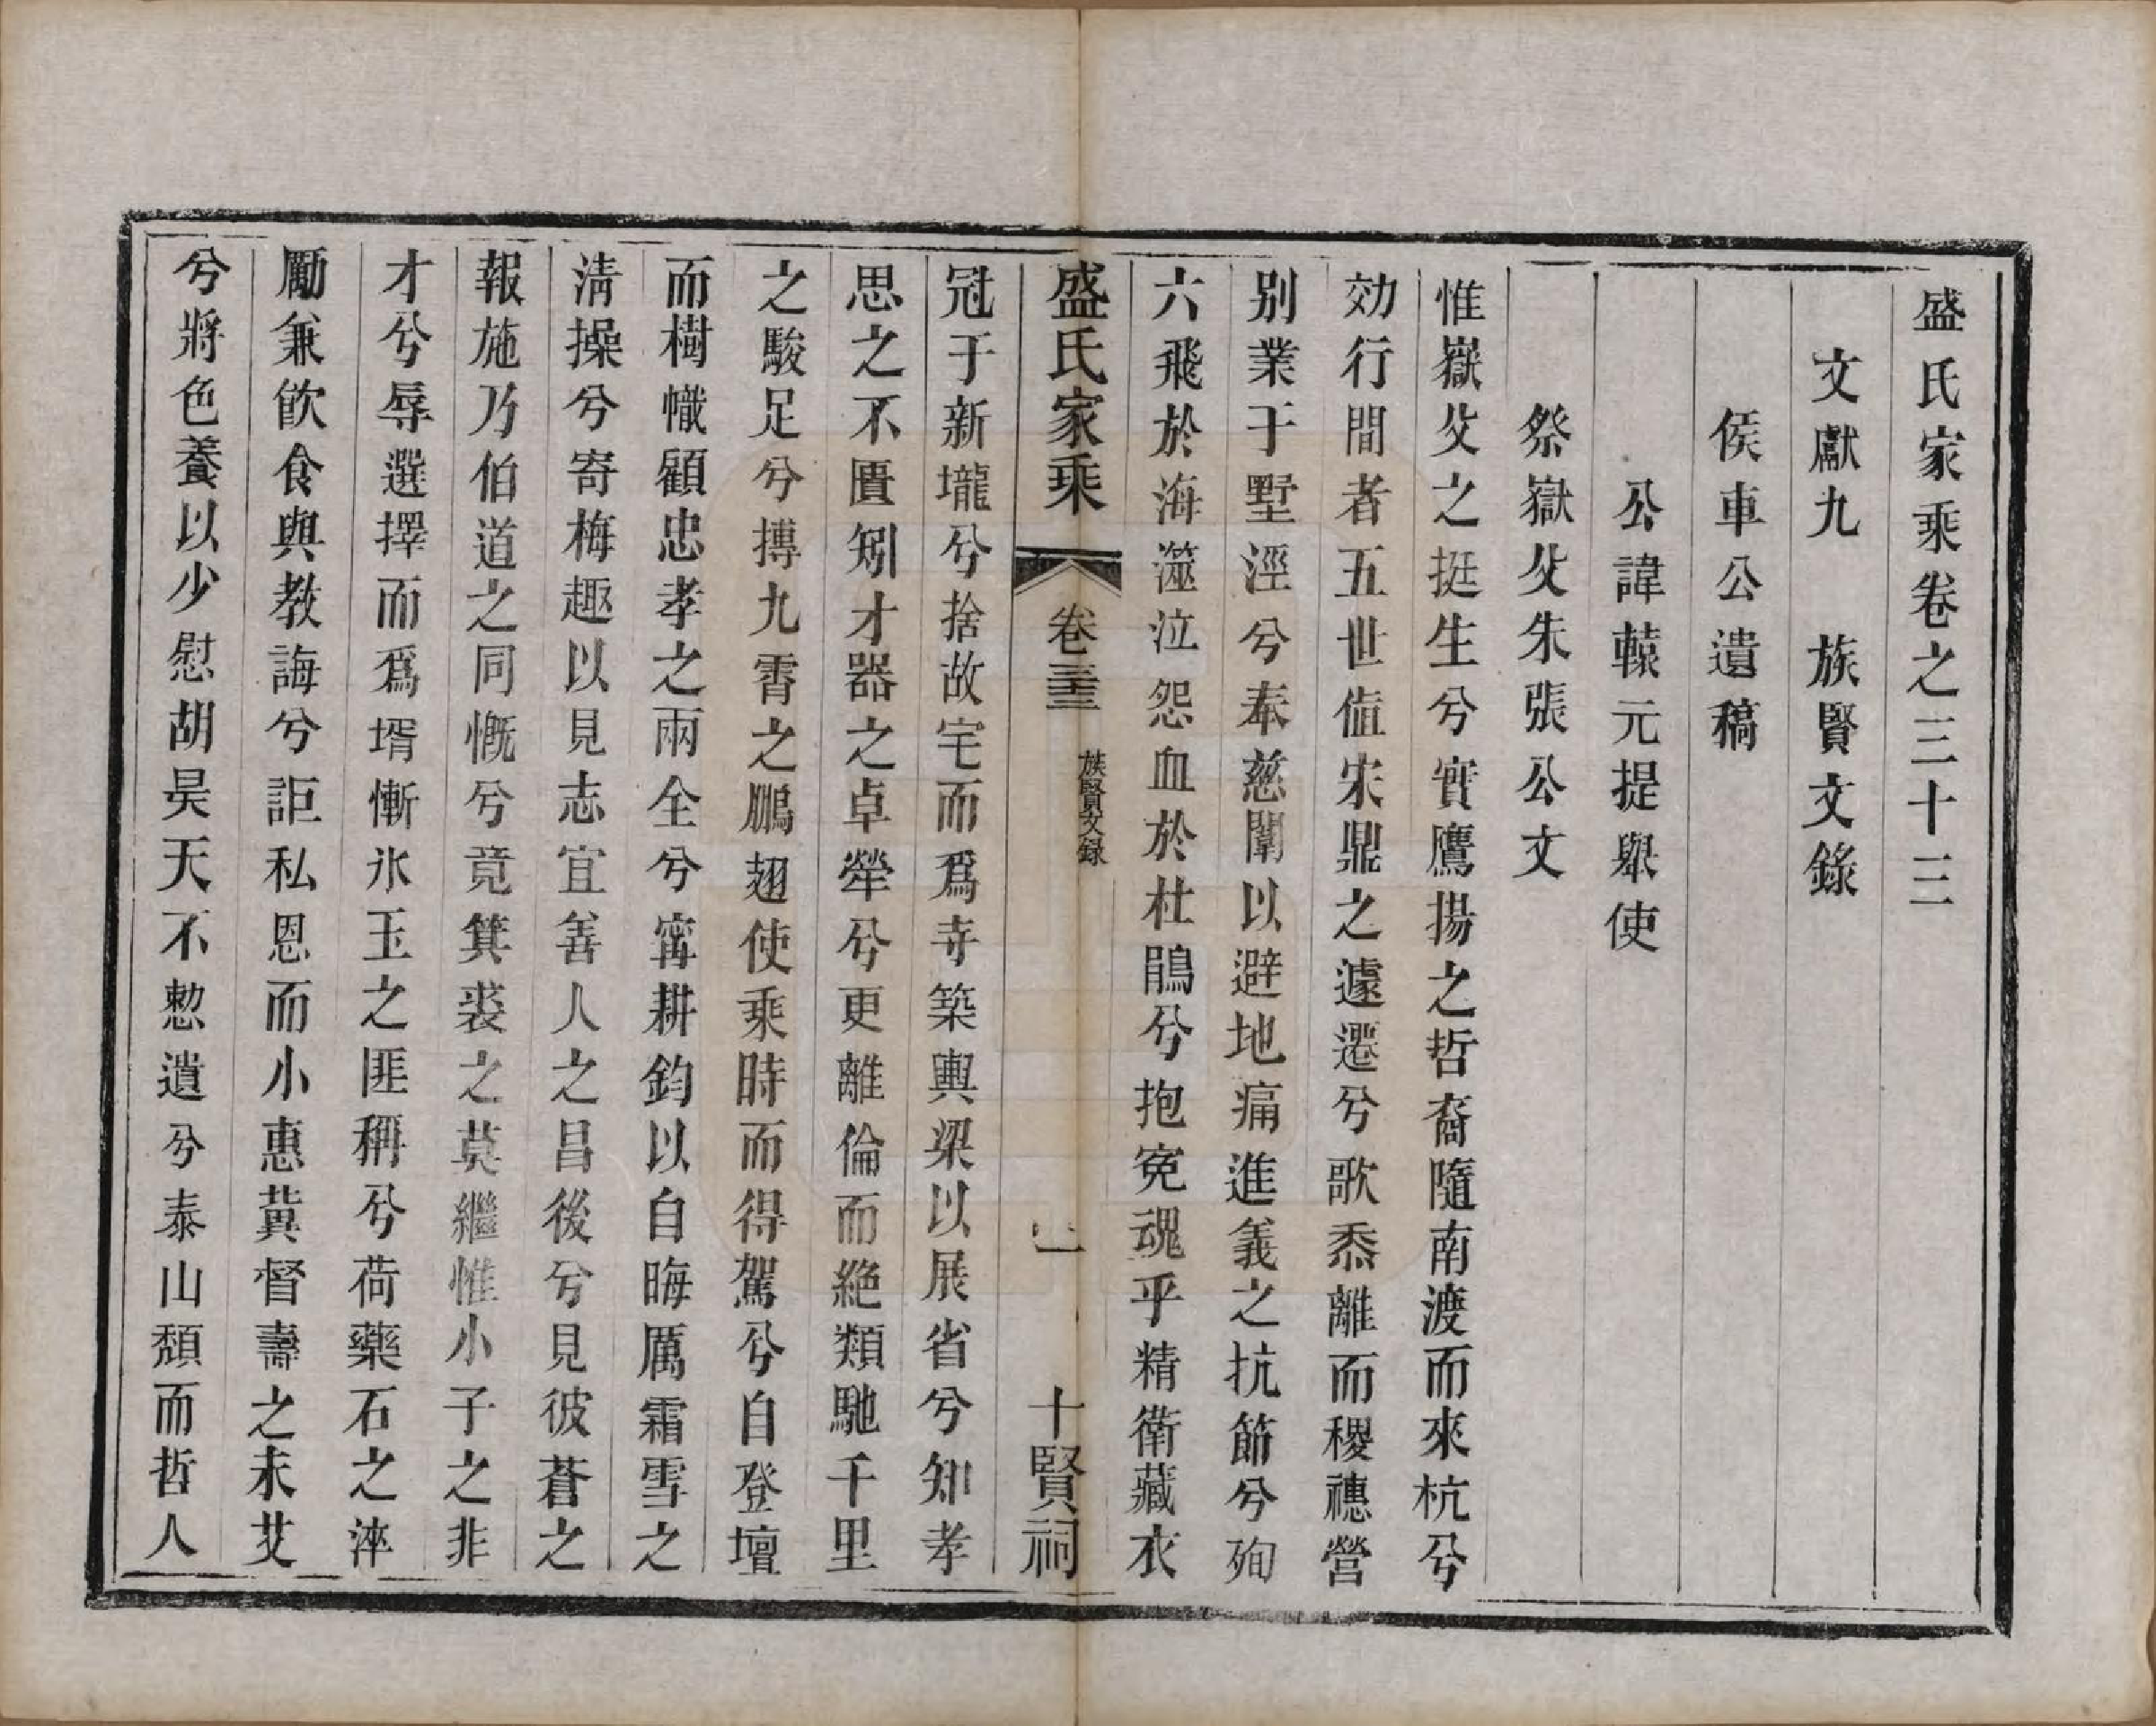 盛氏家乘卷之三十三
文獻九　族賢文錄
侯車公遺稿
公諱轅元提舉使
祭嶽父朱張公文
惟嶽父之挺生兮實鷹揚之哲裔隨南渡而來杭兮
効行間者五世值宋鼎之遽遷兮歌黍離而稷穗營
别業于墅涇兮奉慈闈以避地痛進義之抗節兮殉
六飛於海澨泣怨血於杜鵑兮抱寃魂乎精衛藏衣
冠于新壠兮捨故宅而爲寺築輿梁以展省兮知孝
思之不匱矧才器之卓犖兮更離倫而絶類馳千里
之駿足兮摶九霄之鵬翅使乘時而得駕兮自登壇
而樹幟顧忠孝之兩全兮寗耕釣以自晦厲霜雪之
淸操兮寄梅趣以見志宜善人之昌後兮見彼蒼之
報施乃伯道之同慨兮竟箕裘之莫繼惟小子之非
才兮辱選擇而爲壻慚氷玉之匪稱兮荷藥石之淬
勵兼飲食與教誨兮詎私恩而小惠冀督壽之未艾
兮將色養以少慰胡昊天不憗遺兮泰山頹而哲人
盛氏家乘　卷三十三　族賢文錄　一　十賢祠